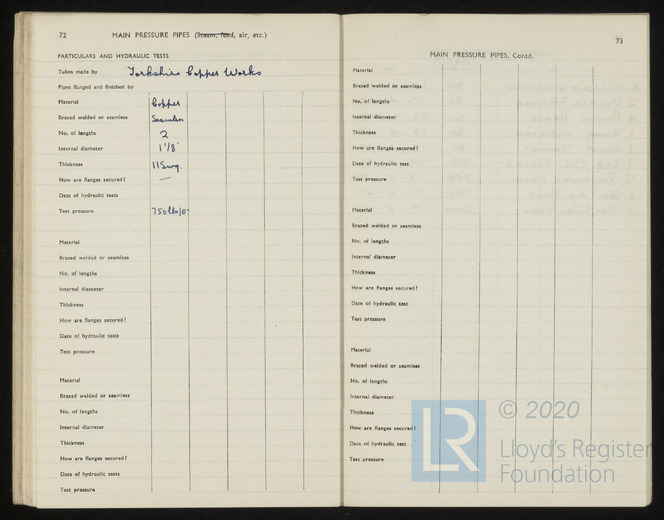 72 MAIN PRESSURE PIPES (Steam, feed, air, etc.)
PARTICULARS AND HYDRAULIC TESTS
Tubes made by Yorkshire Copper Works
Pipes flanged and finished by
Material Copper
Brazed welded or seamless Seamless
No. of lengths 2
Internal diameter 1 1/8"
Thickness 11 Swg.
How are flanges secured? —
Date of hydraulic tests
Test pressure 750 lbs/□"
Material
Brazed welded or seamless
No. of lengths
Internal diameter
Thickness
How are flanges secured?
Date of hydraulic tests
Test pressure
Material
Brazed welded or seamless
No. of lengths
Internal diameter
Thickness
How are flanges secured?
Date of hydraulic tests
Test pressure
73
MAIN PRESSURE PIPES, Contd.
Material
Brazed welded or seamless
No. of lengths
Internal diameter
Thickness
How are flanges secured?
Date of hydraulic test
Test pressure
Material
Brazed welded or seamless
No. of lengths
Internal diameter
Thickness
How are flanges secured?
Date of hydraulic test
Test pressure
Material
Brazed welded or seamless
No. of lengths
Internal diameter
Thickness
How are flanges secured?
Date of hydraulic test
Test pressure
LR
© 2020
Lloyd's Register
Foundation